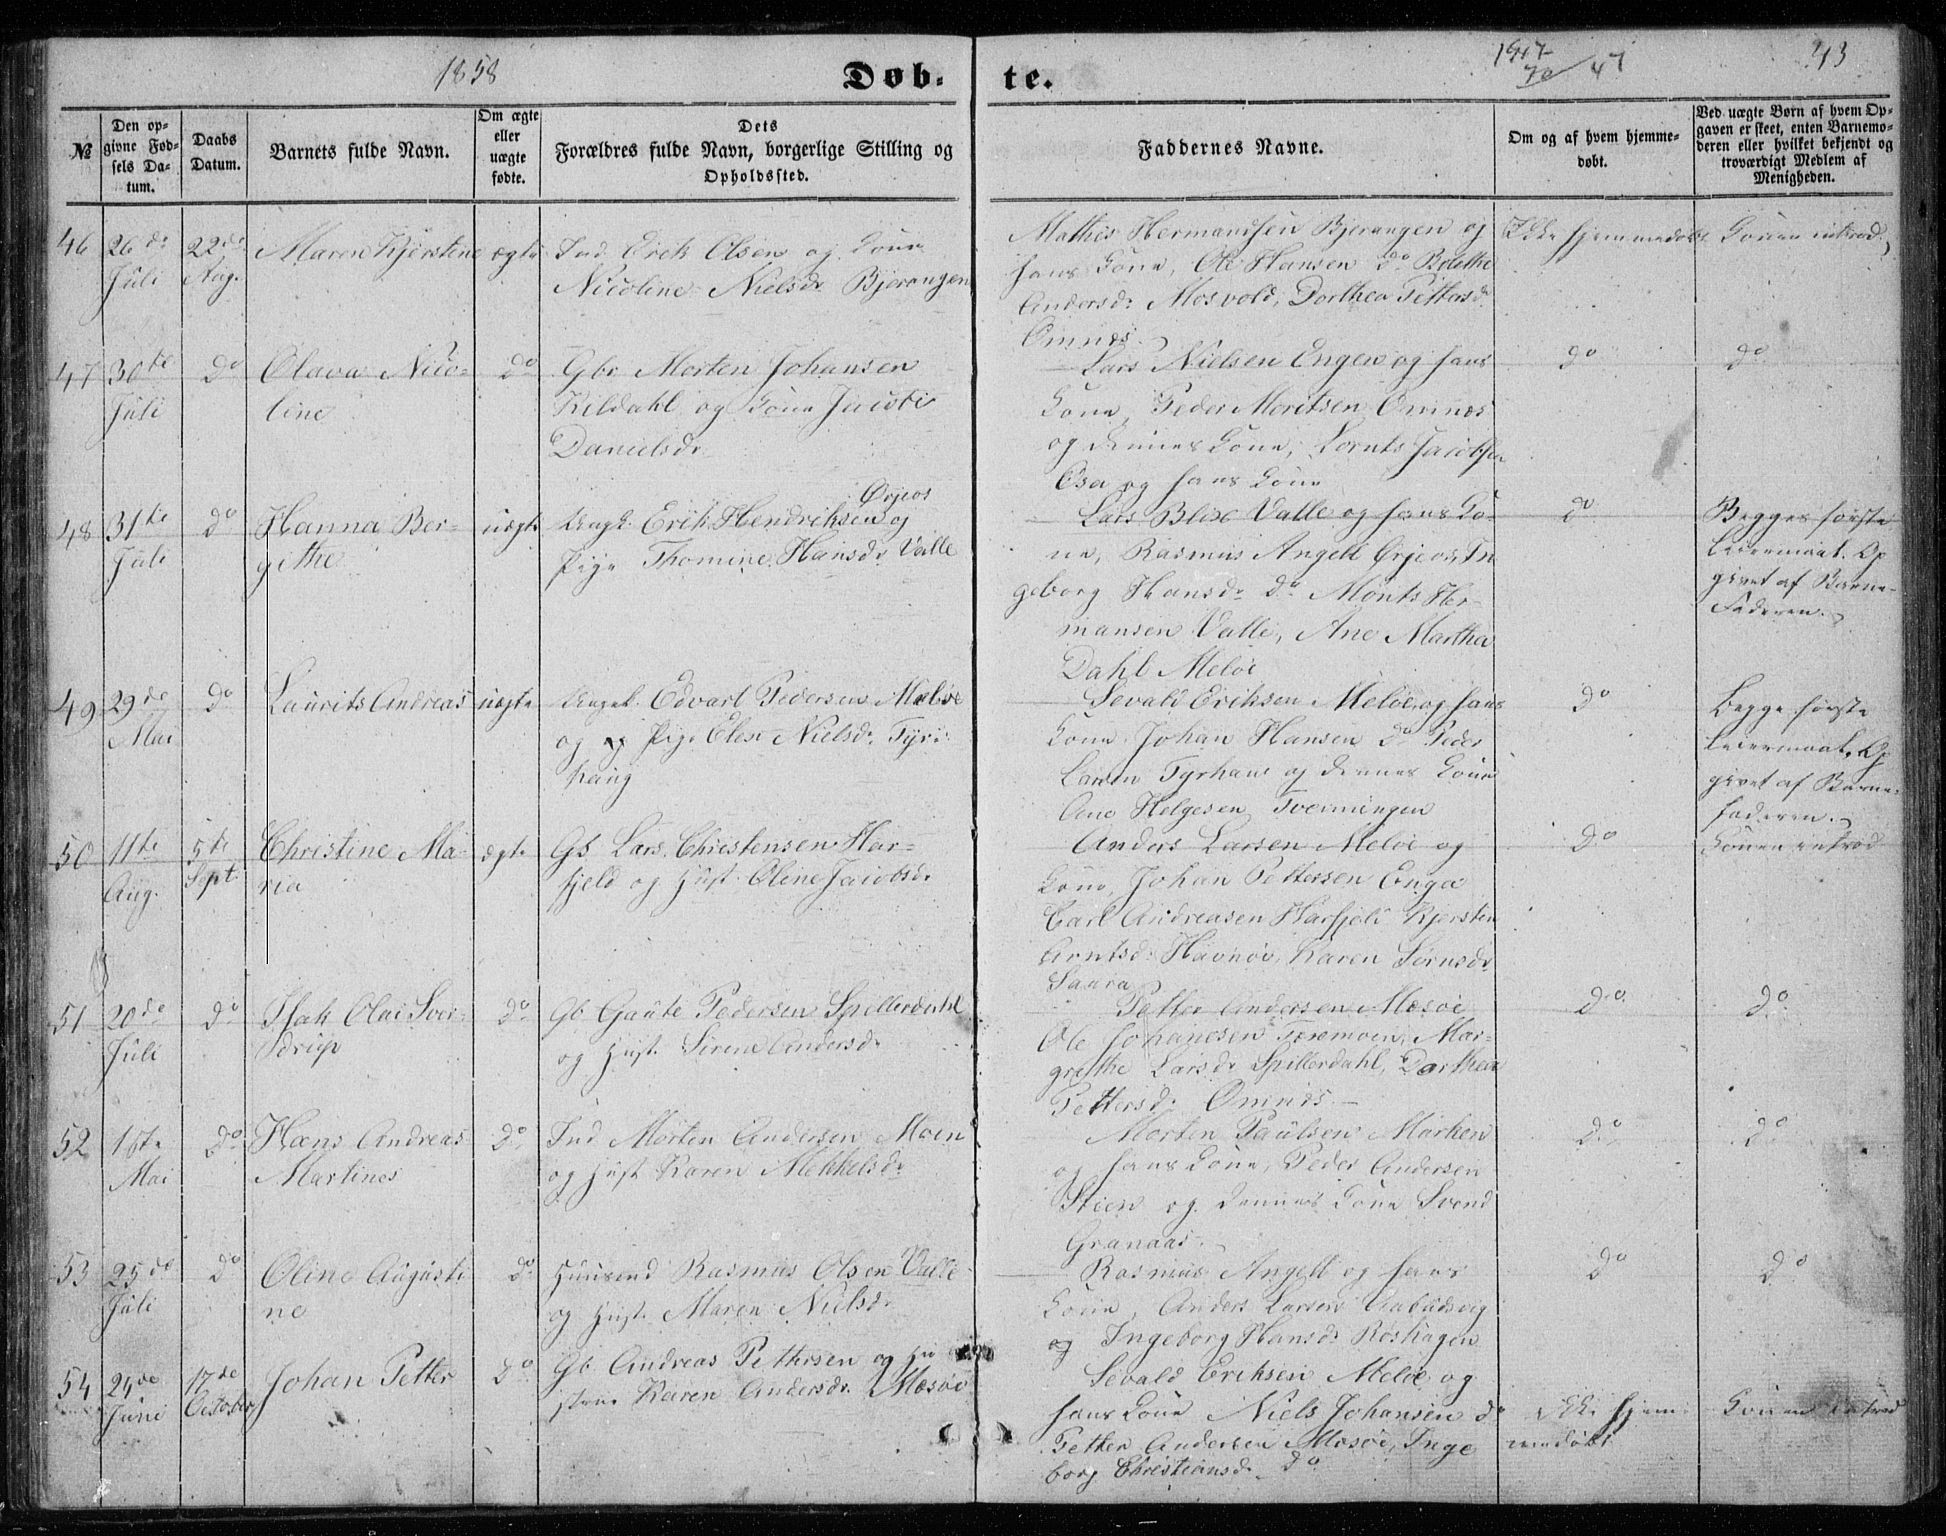 1858
Døb-
te.
43
№
Den opgivne Fødsels Datum.
Daabs Datum.
Barnets fulde Navn.
Om ægte eller uægte fødte.
Dets Forældres fulde Navn, borgerlige Stilling og Opholdssted.
Faddernes Navne.
Om og af hvem hjemmedøbt.
Ved uægte Børn af hvem Opgaven er skeet, enten Barnemoderen eller hvilket bekjendt og troværdigt Medlem af Menigheden.
46 26de Juli 22de Aug. Maren Kjerstine ægte
Ind. Erik Olsen og Kone
Nicoline Nielsdr Bjerangen
Mathis Hermandsen Bjerangen og
hans Kone, Ole Hansen do
Andersdr Mosvold, Dorthea Pettersdr
Ømnes.
Ikke hjemmedøbt Konen introd.
47 30te Juli do Olava Nico-
line do
Gbr Morten Johansen
Kildahl og Kone Jacobi
Danielsdr
Lars Nielsen Engen og hans
Kone, Peder Moritsen Ømnes
og dennes Kone, Lornts Jacobsen
Osa og hans Kone
do do
48 31te Juli do Hanna Ber-
githe uægte
Ungk. Erik Hendriksen Ørjeos og
Pige Thomine Hansdr Valle
Lars Blix Valle og hans Ko-
ne, Rasmus Angell Ørjeos, In
geborg Hansdr do Monts Her-
mansen Valle, Ane Martha
Dahl Meløe
do
Begges første
Leiermaal. Op
givet af Barne-
Faderen.
49 29de Mai do Laurits Andreas uægte
Ungk. Edvart Pedersen Meløe
og Pige Elen Nielsdr Tyri
haug
Sevald Eriksen Meløe og hans
Kone Johan Hansen do Peder
Larsen Tyrhaug og dennes Kone
Ane Helgesen Tverningen
do
Begge første
Leiermaal. Op
givet af Barne-
faderen.
50 11te Aug. 5te Sept. Christine Ma-
ria ægte
Gb Lars Christensen Har-
fjeld og Hust. Oline Jacobsdr
Anders Larsen Meløe og
Kone, Johan Pettersen Enga
Carl Andreasen Harfjeld Kjersten
Arntsdr Havnøe, Karen Sørnsdr
Saura
do Konen introd
51 20de Juli do Isak Olai Sver-
drup do
Gb Gaute Pedersen Spillerdahl
og Hust. Sirene Andersdr
Petter Andersen Mesøe
Ole Johanesen Toremoen, Mar-
grethe Larsdr Spillerdahl, Dorthea
Pettersdr Ømnes
do do
52 16te Mai do Hans Andreas
Martines do
Ind. Morten Andersen Moen
og Hust Karen Mekkelsdr
Morten Paulsen Marken
og hans Kone, Peder Andersen
Stien og dennes Kone Svend
Granaas.
do do
53 25de Juli do Oline Augusti
ne do
Huusmd Rasmus Olsen Valle
og Hust. Maren Nielsdr
Rasmus Angell og hans
Kone, Anders Larsen
og Ingeborg Hansdr Røshagen
do do
54 24de Juni 17de October Johan Petter do
Gb Andreas Pethersen og Hu
strue Karen Andersdr Mesøe
Sevald Eriksen Meløe og
hans Kone Niels Johansen do
Petter Andersen Mesøe, Inge
borg Christiansdr do
Ikke hjem-
medøbt
Konen introd